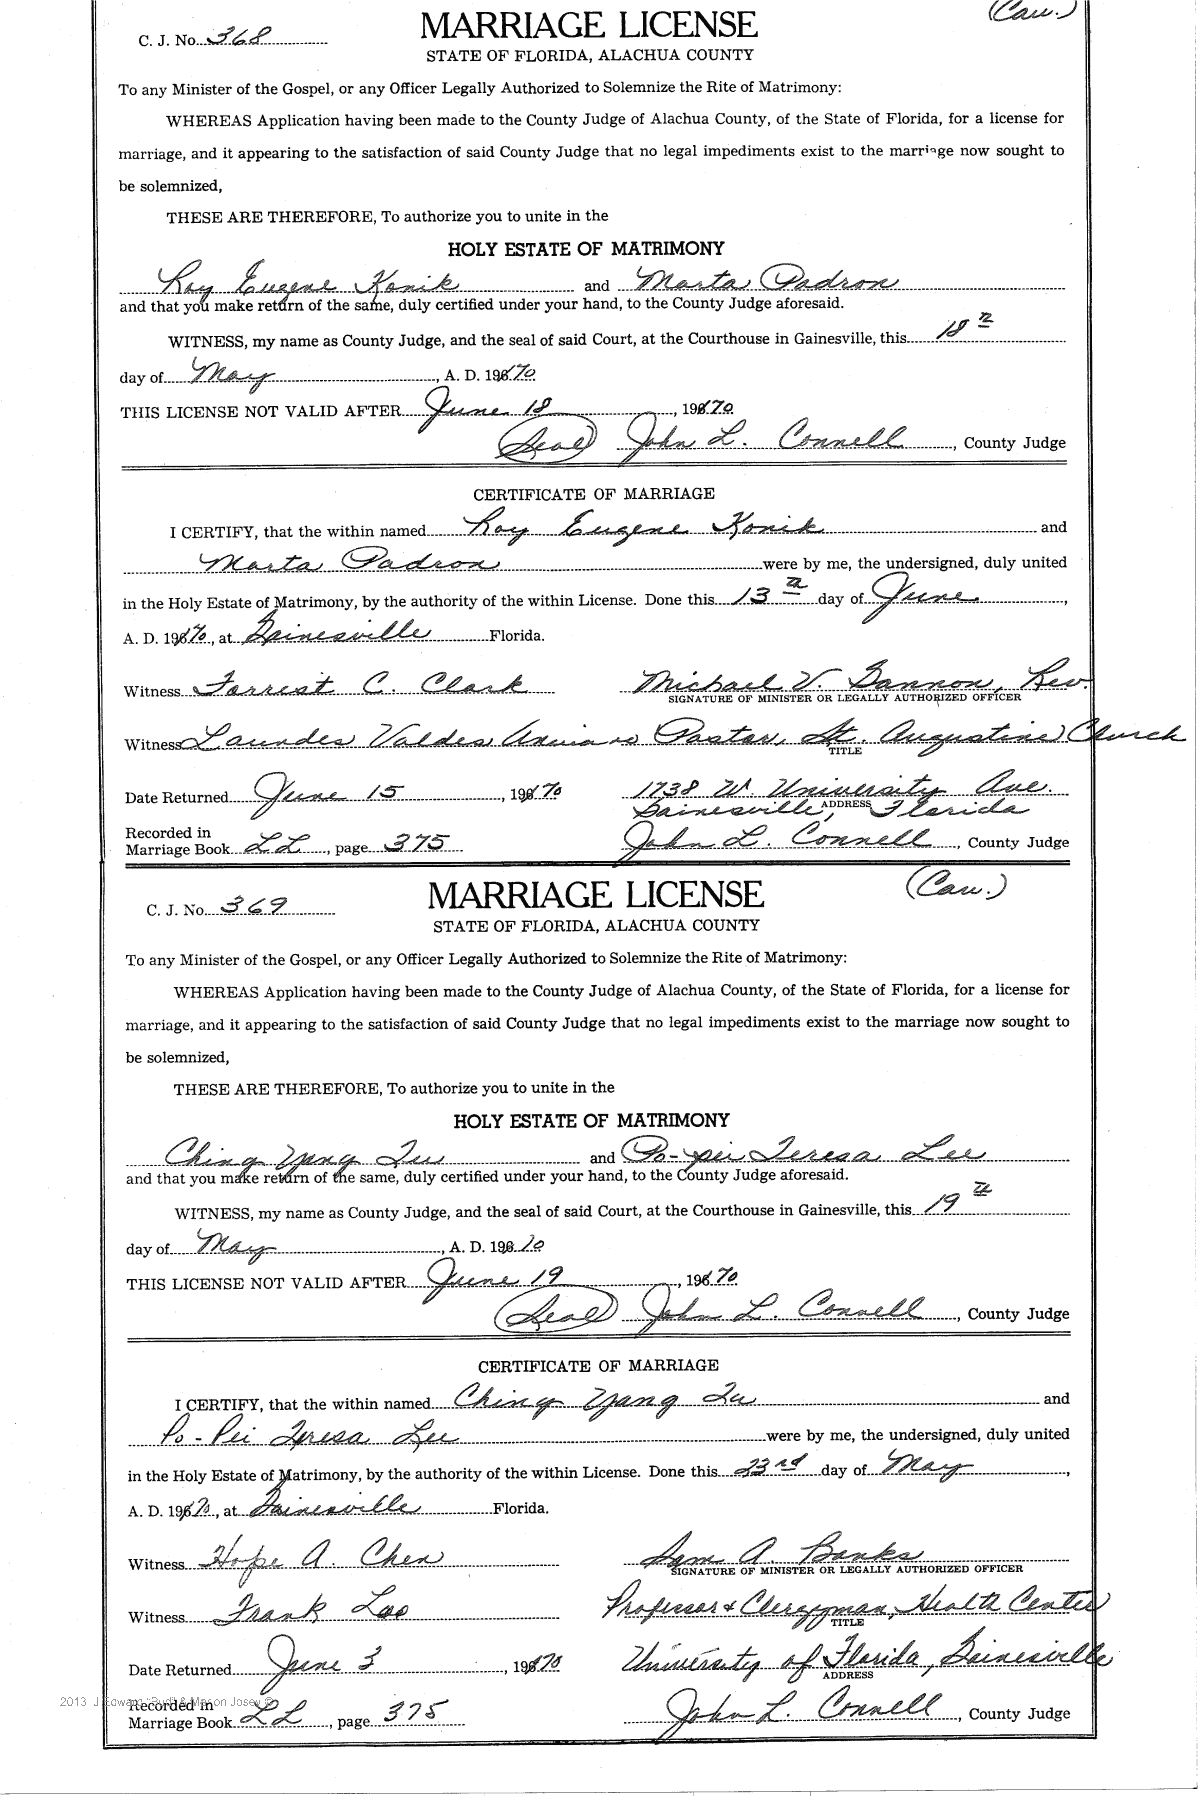 (Cau.)
C. J. No. 368
MARRIAGE LICENSE
STATE OF FLORIDA, ALACHUA COUNTY
To any Minister of the Gospel, or any Officer Legally Authorized to Solemnize the Rite of Matrimony:
WHEREAS Application having been made to the County Judge of Alachua County, of the State of Florida, for a license for
marriage, and it appearing to the satisfaction of said County Judge that no legal impediments exist to the marriage now sought to
be solemnized,
THESE ARE THEREFORE, To authorize you to unite in the
HOLY ESTATE OF MATRIMONY
Roy Eugene Konik and Marta Padron
and that you make return of the same, duly certified under your hand, to the County Judge aforesaid.
WITNESS, my name as County Judge, and the seal of said Court, at the Courthouse in Gainesville, this 18th
day of May, A. D. 1970
THIS LICENSE NOT VALID AFTER June 18, 1970
(Seal) John L. Connell, County Judge
CERTIFICATE OF MARRIAGE
I CERTIFY, that the within named Roy Eugene Konik and
Marta Padron were by me, the undersigned, duly united
in the Holy Estate of Matrimony, by the authority of the within License. Done this 13th day of June,
A. D. 1970, at Gainesville Florida.
Witness Forrest C. Clark Michael V. Gannon, Rev.
SIGNATURE OF MINISTER OR LEGALLY AUTHORIZED OFFICER
Witness Lourdes Valdes Pastor, St. Augustine Church
TITLE
Date Returned June 15, 1970 1738 W. University Ave.
Gainesville, ADDRESS Florida
Recorded in
Marriage Book LL, page 375 John L. Connell, County Judge
C. J. No. 369
MARRIAGE LICENSE
(Cau.)
STATE OF FLORIDA, ALACHUA COUNTY
To any Minister of the Gospel, or any Officer Legally Authorized to Solemnize the Rite of Matrimony:
WHEREAS Application having been made to the County Judge of Alachua County, of the State of Florida, for a license for
marriage, and it appearing to the satisfaction of said County Judge that no legal impediments exist to the marriage now sought to
be solemnized,
THESE ARE THEREFORE, To authorize you to unite in the
HOLY ESTATE OF MATRIMONY
Ching Yang Lu and Po-pei Teresa Lee
and that you make return of the same, duly certified under your hand, to the County Judge aforesaid.
WITNESS, my name as County Judge, and the seal of said Court, at the Courthouse in Gainesville, this 19th
day of May, A. D. 1970
THIS LICENSE NOT VALID AFTER June 19, 1970
(Seal) John L. Connell, County Judge
CERTIFICATE OF MARRIAGE
I CERTIFY, that the within named Ching Yang Lu and
Po-Pei Teresa Lee were by me, the undersigned, duly united
in the Holy Estate of Matrimony, by the authority of the within License. Done this 23rd day of May,
A. D. 1970, at Gainesville Florida.
Witness Hope A. Chen Sam A. Banks
SIGNATURE OF MINISTER OR LEGALLY AUTHORIZED OFFICER
Witness Frank Loo Professor & Clergyman, Health Center
TITLE
Date Returned June 3, 1970 University of Florida, Gainesville
ADDRESS
2013 J Edward "Bud" & Marion Josey ©
Recorded in
Marriage Book LL, page 375 John L. Connell, County Judge